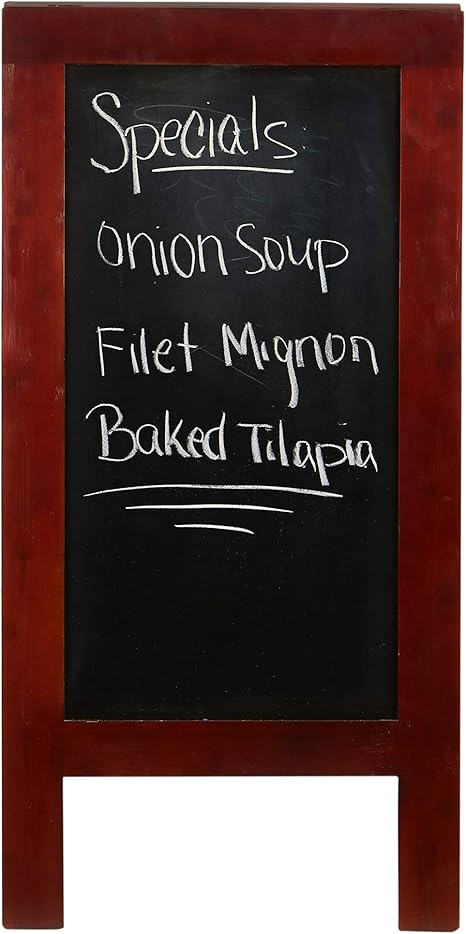 Specials
Onion Soup
Filet Mignon
Baked Tilapia